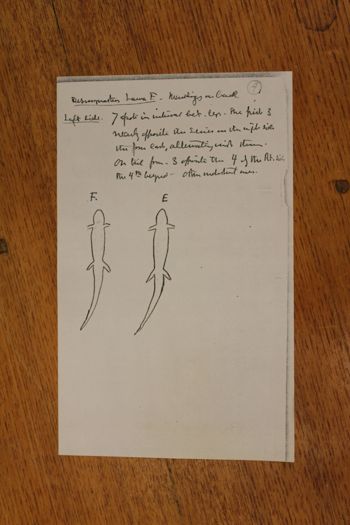 Larva F. - Markings on back
Left side. 7 spots in interval bet. legs. The first 3
nearly opposite the series on the right side
the four last, alternating with them.
On tail four. 3 opposite the 4 of the Rt. side
the 4th beyond - other indistinct ones.
F. E